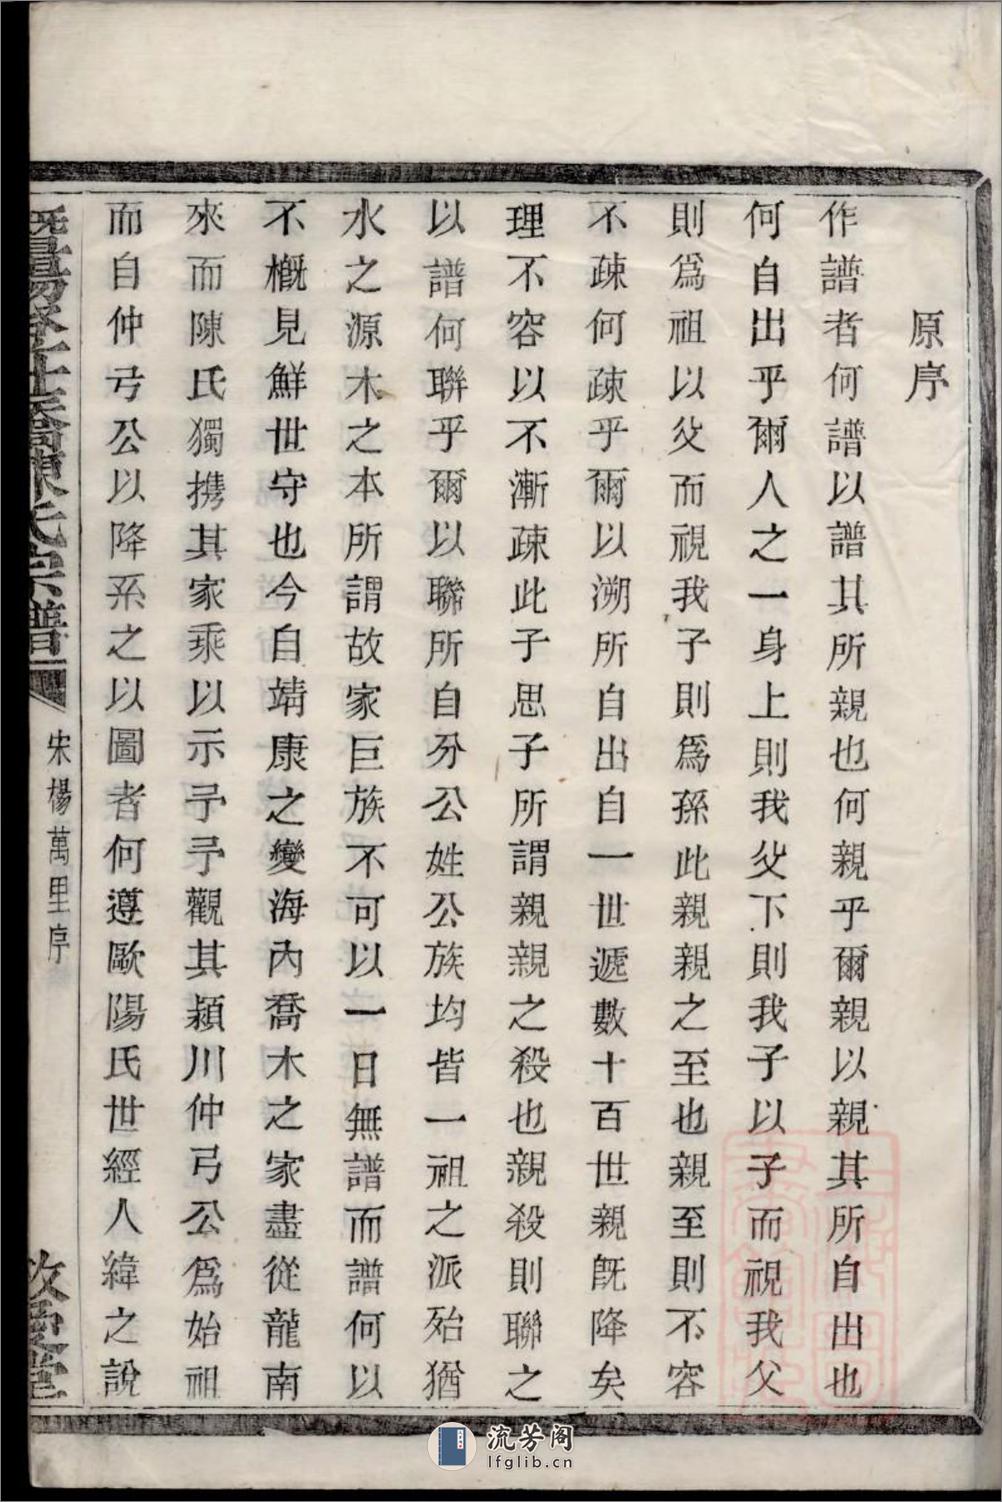 原序
作譜者何譜以譜其所親也何親乎爾親以親其所自出也
何自出乎爾人之一身上則我父下則我子以子而視我父
則爲祖以父而視我子則爲孫此親親之至也親至則不容
不疎何疎乎爾以溯所自出自一世遞數十百世親旣降矣
理不容以不漸疎此子思子所謂親親之殺也親殺則聯之
以譜何聯乎爾以聯所自分公姓公族均皆一祖之派殆猶
水之源木之本所謂故家巨族不可以一日無譜而譜何以
不槪見鮮世守也今自靖康之變海內喬木之家盡從龍南
來而陳氏獨携其家乘以示予予觀其潁川仲弓公爲始祖
而自仲弓公以降系之以圖者何遵歐陽氏世經人緯之說
陳氏宗譜
宋楊萬里序
流芳阁
lfglib.cn